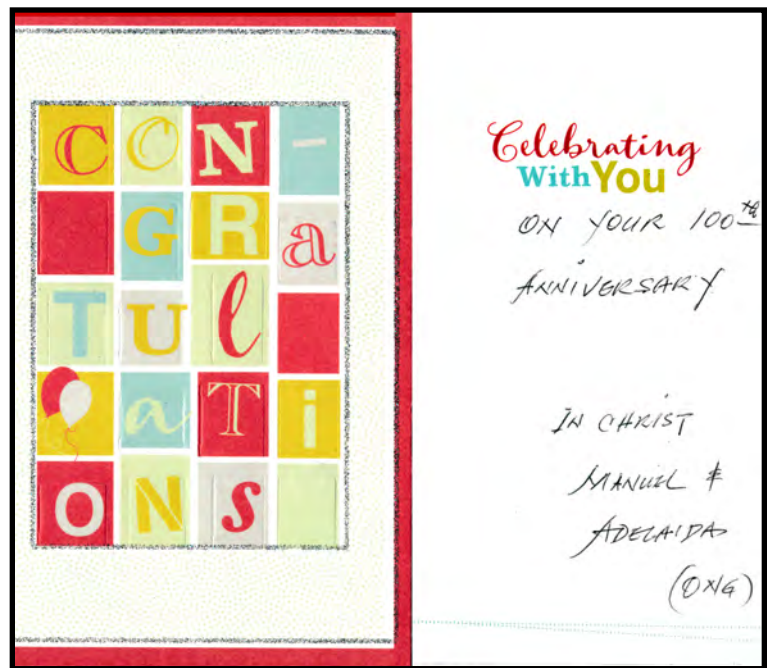 CON-
GRa
TUl
aTi
ONS
Celebrating
With You
ON YOUR 100th
ANNIVERSARY
IN CHRIST
MANUEL &
ADELAIDA
(ONG)